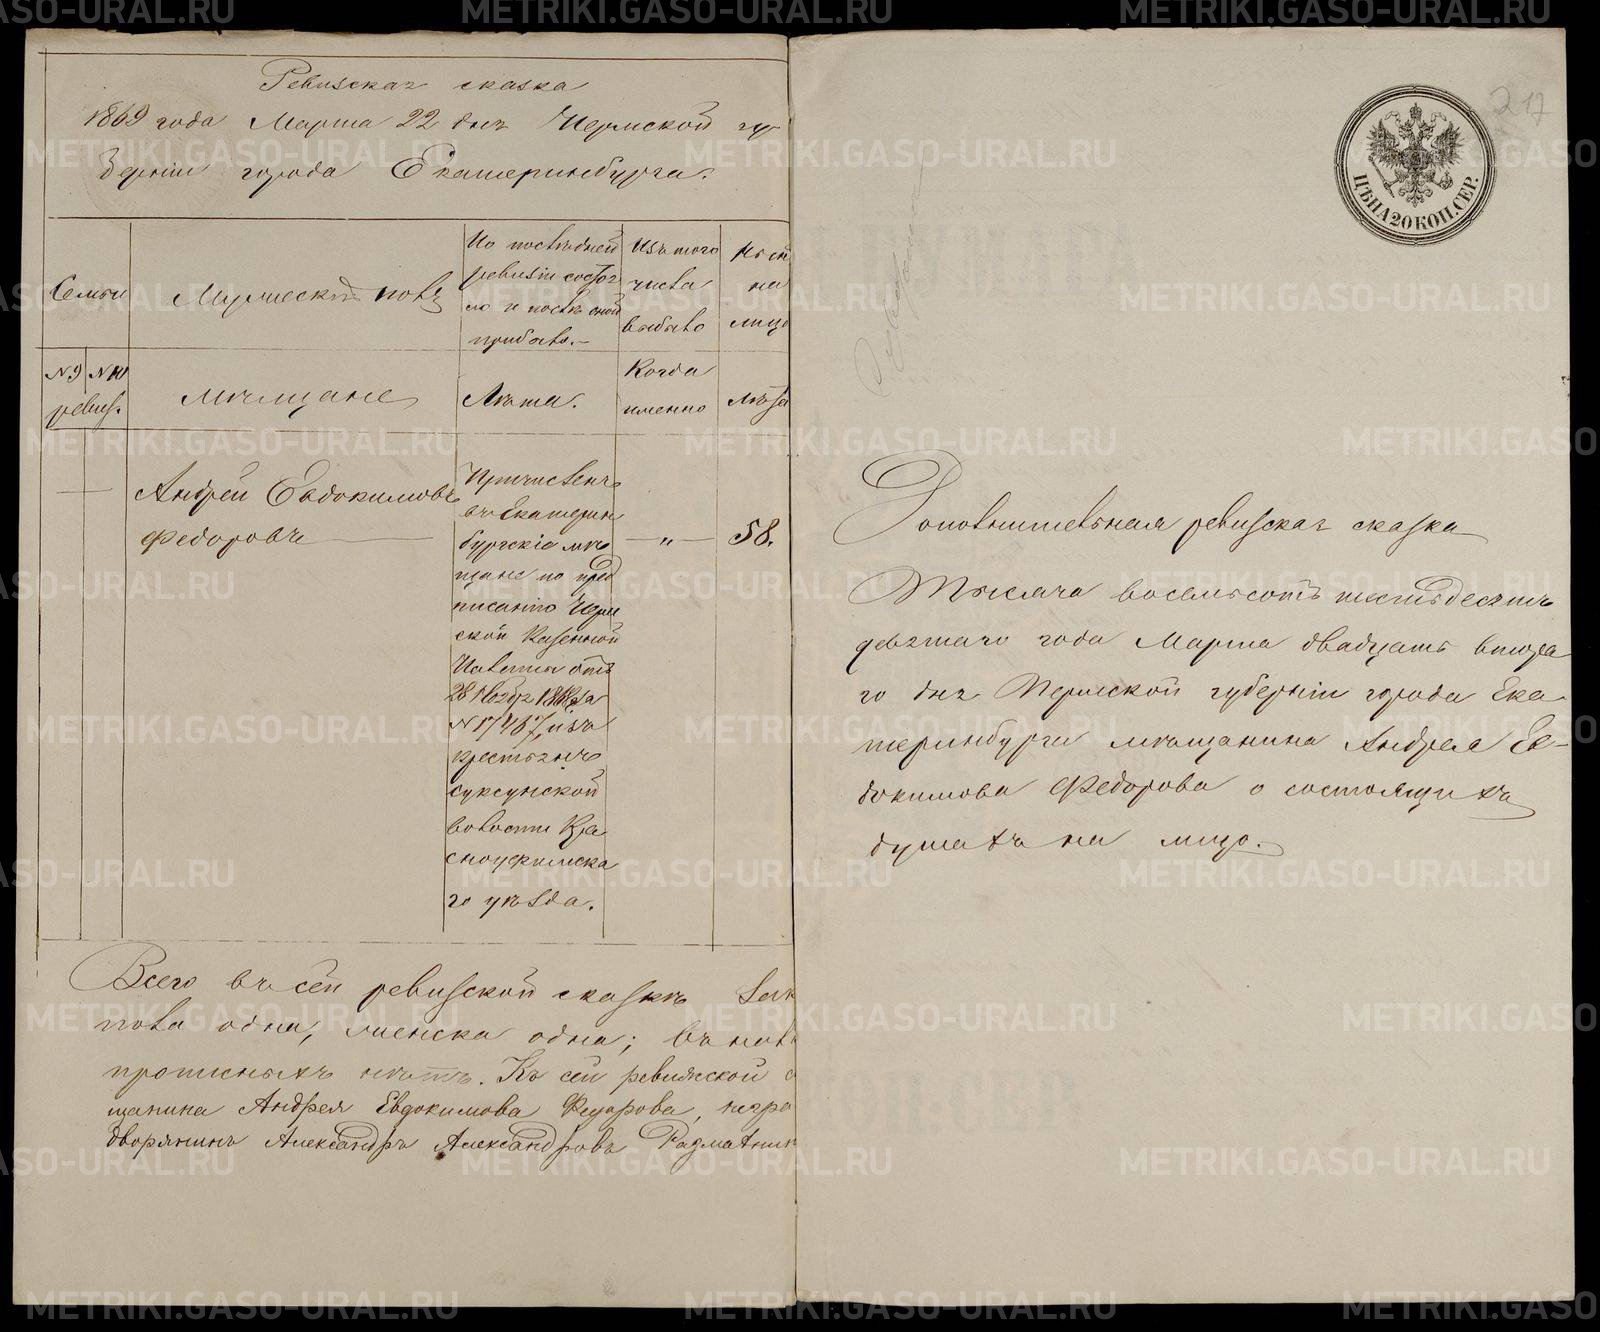 Ревизская сказка
1869 года Марта 22 дня Пермской гу-
берніи города Екатеринбурга.
Семьи
Мужескій полъ
По послѣдней
ревизіи состоя
ло и послѣ оной
прибыло.
Изъ того
числа
выбыло
Нынѣ
на
лицо
№ 9 № 10
ревиз.
мѣщане
Лѣта.
Когда
именно
Лѣта
Андрей Евдокимовъ
Федоровъ
Причисленъ
въ Екатерин
бургскіе мѣ
щане по пред
писанію Перм
ской Казенной
Палаты отъ
28 Ноябр 1868 за
№ 17487, изъ
крестьянъ
Суксунской
волости Кра
сноуфимска
го уѣзда.
— „ —
58.
Всего въ сей ревизской сказкѣ
пола одна, женска одна; вънов
прописныхъ нѣтъ. Къ сей ревижской с
щанина Андрея Евдокимова Федорова, негра
дворянинъ Александръ Александровъ
217
ЦѢНА 20 КОП. СЕР.
Дополнительная ревизская сказка
Тысяча восемьсотъ шестьдесятъ
девятаго года Марта двадцать втора
го дня Пермской губерніи города Ека-
теринбурга мѣщанина Андрея Ев-
докимова Федорова о состоящихъ
душахъ на лицо.
METRIKI.GASO-URAL.RU